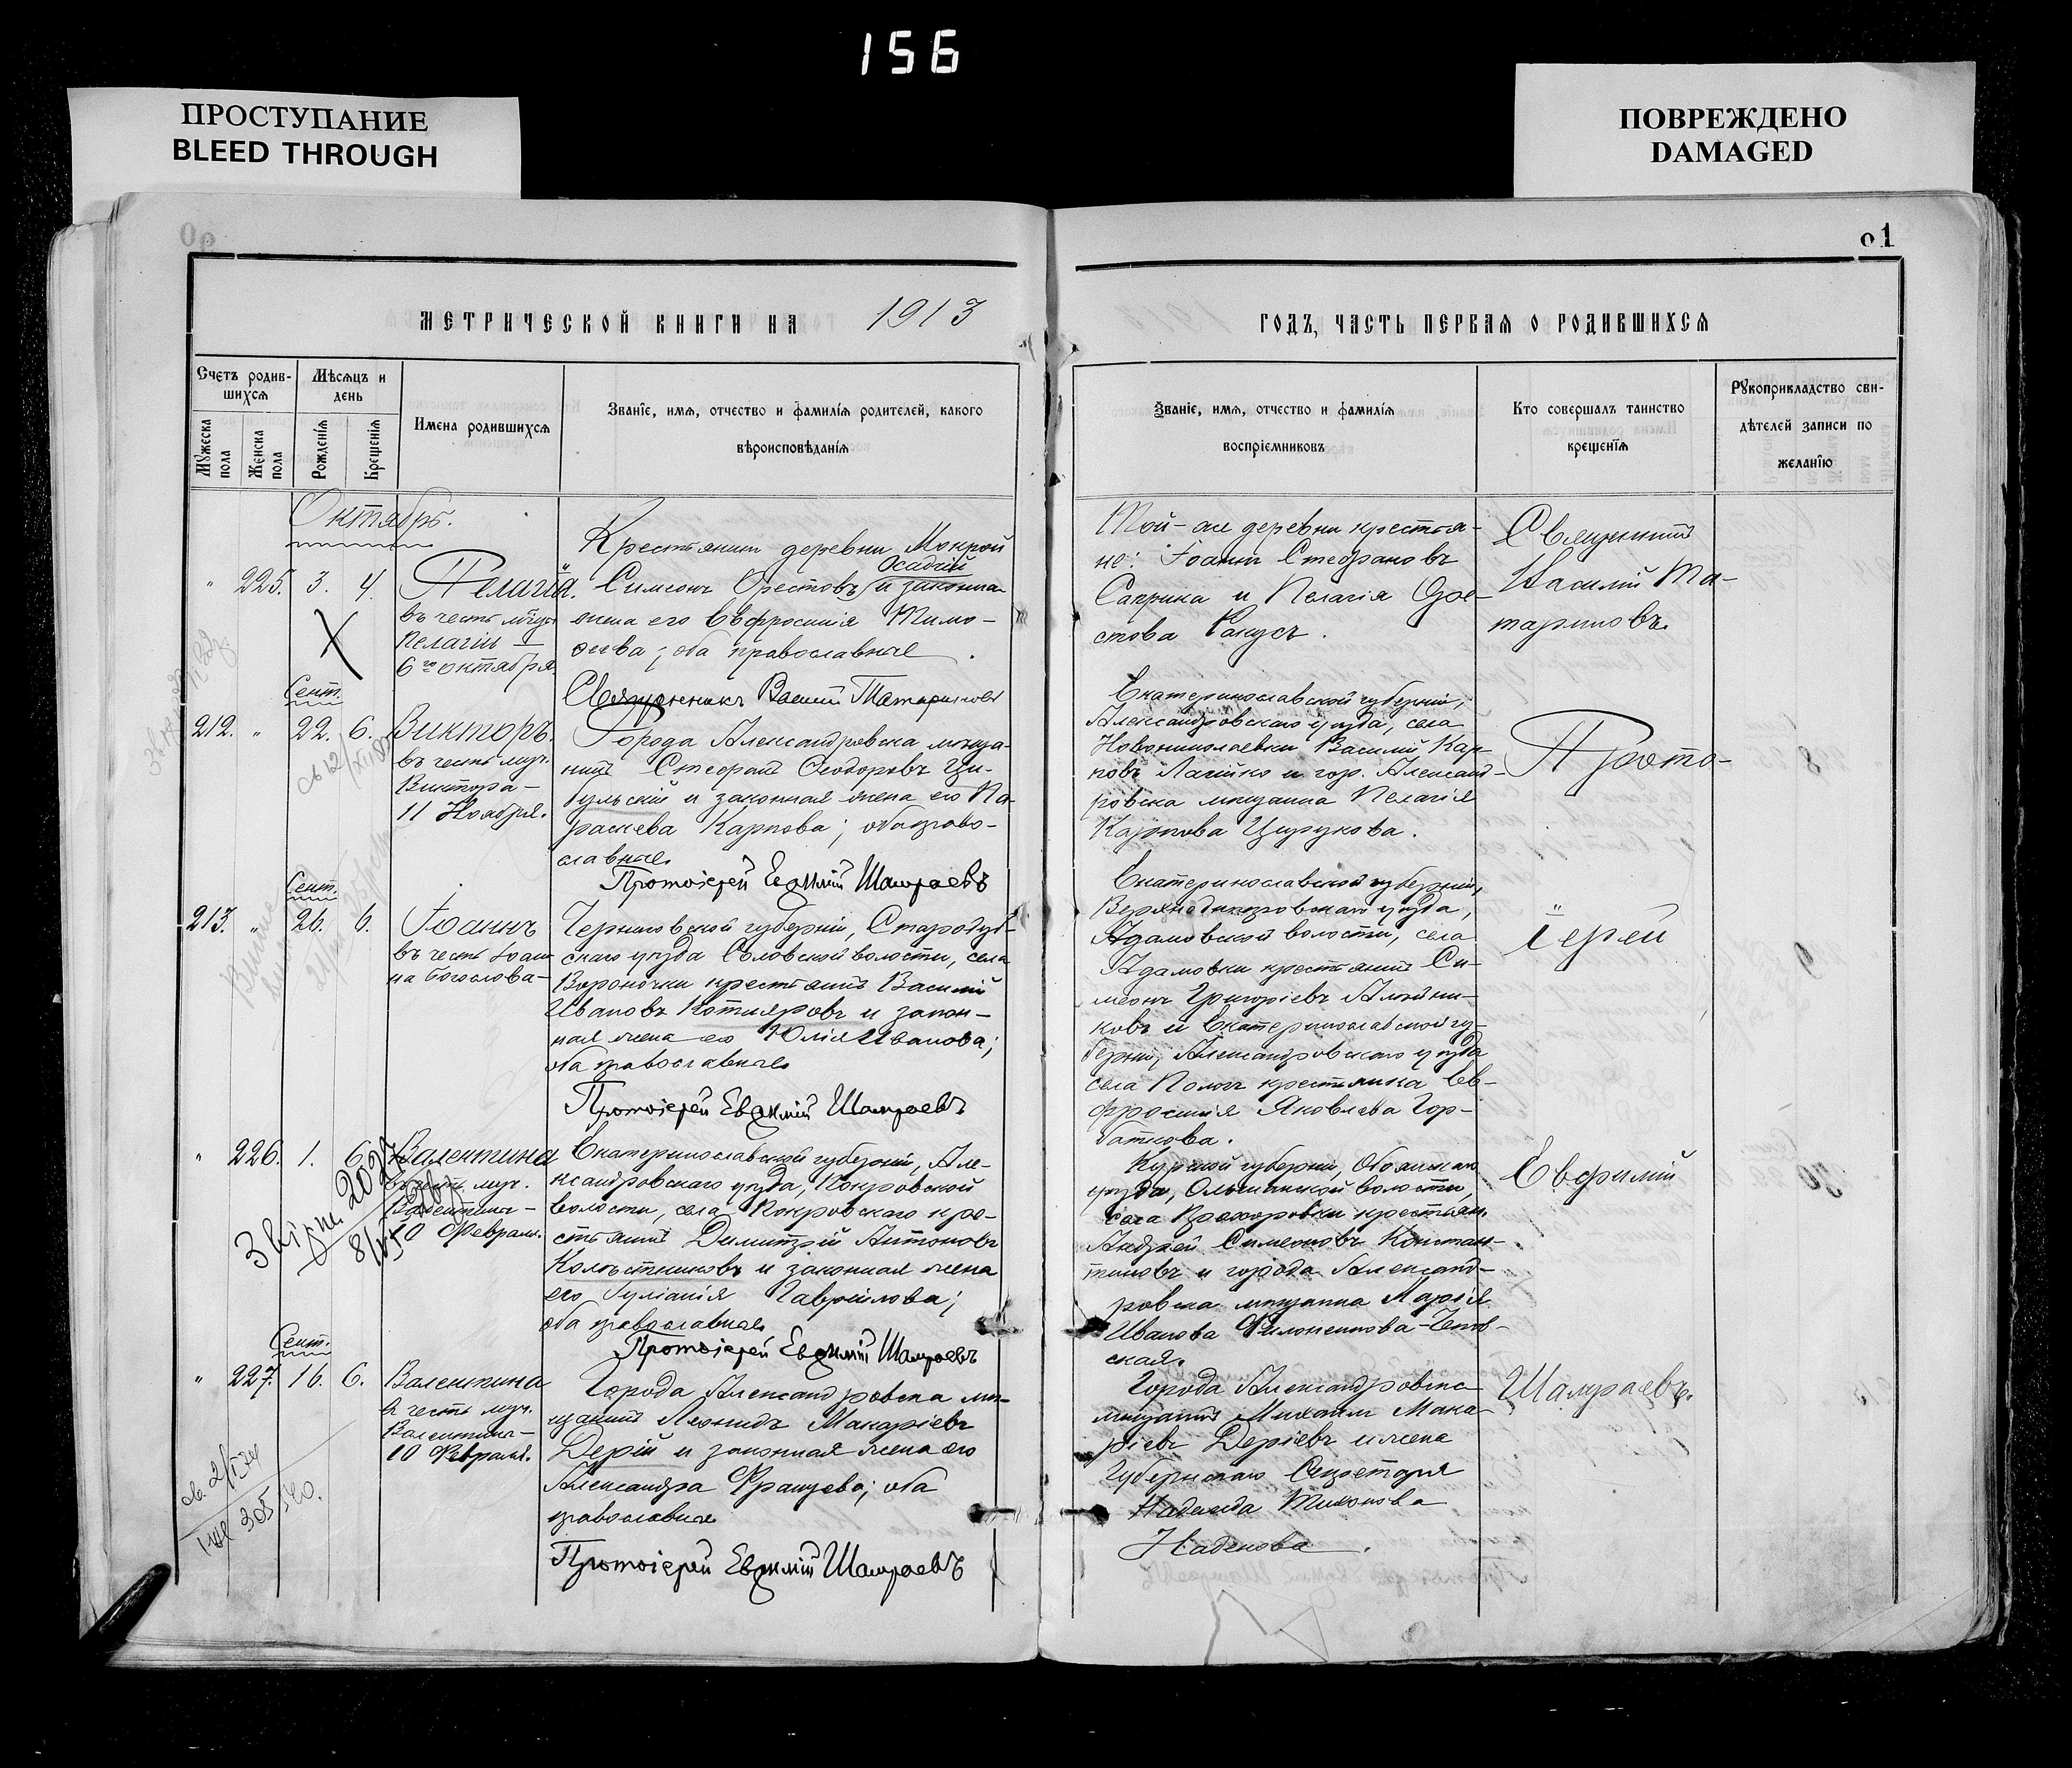 156
ПРОСТУПАНИЕ
BLEED THROUGH
ПОВРЕЖДЕНО
DAMAGED
91
МЕТРИЧЕСКОЙ КНИГИ НА 1913
ГОДЪ, ЧАСТЬ ПЕРВАЯ О РОДИВШИХСЯ
Счетъ родив-
шихся
Мѣсяцъ и
день
Мужеска
пола
Женска
пола
Рожденія
Крещенія
Имена родившихся
Званіе, имя, отчество и фамилія родителей, какого
вѣроисповѣданія
Званіе, имя, отчество и фамилія
воспріемниковъ
Кто совершалъ таинство
крещенія
Рукоприкладство сви-
дѣтелей записи по
желанію
Октябрь.
" 225. 3. 4. Пелагія.
въ честь
Пелагіи
6го октября
Крестьянинъ деревни Мокрой
Осадчій
Симеонъ Орестовъ и закона
жена его Евфросинія Тимо-
ѳеева; оба православные.
Священникъ Василій Татариновъ
Той-же деревни крестья-
не: Іоаннъ Стефановъ
Саприка и Пелагія Оре-
стова
Священникъ
Василій Та-
тариновъ.
Сент.
212. " 22. 6. Викторъ.
въ честь муч.
Виктора -
11 Ноября.
Города Александровска мѣща-
нинъ Стефанъ Ѳеодоровъ Ци-
бульскій и законная жена его Па-
раскева Карпова; оба право-
славные.
Протоіерей Евѳимій Шамраевъ
Екатеринославской губерніи,
Александровскаго уѣзда, села
Новониколаевки Василій Кар-
повъ и гор. Александ-
ровска мѣщанка Пелагія
Карпова Цирукова.
Прото-
Сент.
213. " 26. 6. Іоаннъ
въ честь Іоан
на Богослова -
Черниговской губерніи, Стародуб-
скаго уѣзда волости, села
Вороночки крестьянинъ Василій
Ивановъ Котляровъ и закон-
ная жена его Юлія Иванова;
оба православные
Протоіерей Евѳимій Шамраевъ
Екатеринославской губерніи,
Верхнеднѣпровскаго уѣзда,
Адамовской волости, села
Адамовки крестьянинъ Си-
меонъ Григоріевъ Алейни-
ковъ и Екатеринославской гу-
берніи, Александровскаго уѣзда
села Пологъ крестьянка Ев-
фросинія Яковлева Гор-
баткова.
іерей
" 226. 1. 6. Валентина
въ честь муч.
Валентины -
10 Февраля.
Екатеринославской губерніи, Але-
ксандровскаго уѣзда, Покровской
волости, села Покровскаго кре-
стьянинъ Димитрій Антоновъ
Колѣсниковъ и законная жена
его Іуліанія Гавріилова;
оба православные
Протоіерей Евѳимій Шамраевъ
Курской губерніи, Обоянскаго
уѣзда, Ольшанской волости,
села Прохоровки крестьян.
Андрей Симеоновъ Констан-
тиновъ и города Александ-
ровска мѣщанка Марія
Иванова
ская.
Евфимій
Сент.
" 227. 16. 6. Валентина
въ честь муч.
Валентины -
10 Февраля.
Города Александровска мѣ-
щанинъ Леонидъ Макаріевъ
Дерій и законная жена его
Александра Францева; оба
православные
Протоіерей Евѳимій Шамраевъ
Города Александровска
мѣщанинъ Михаилъ Мака-
ріевъ Деріевъ и жена
Губернскаго Секретаря
Надежда Тихонова
Наденова.
Шамраевъ.